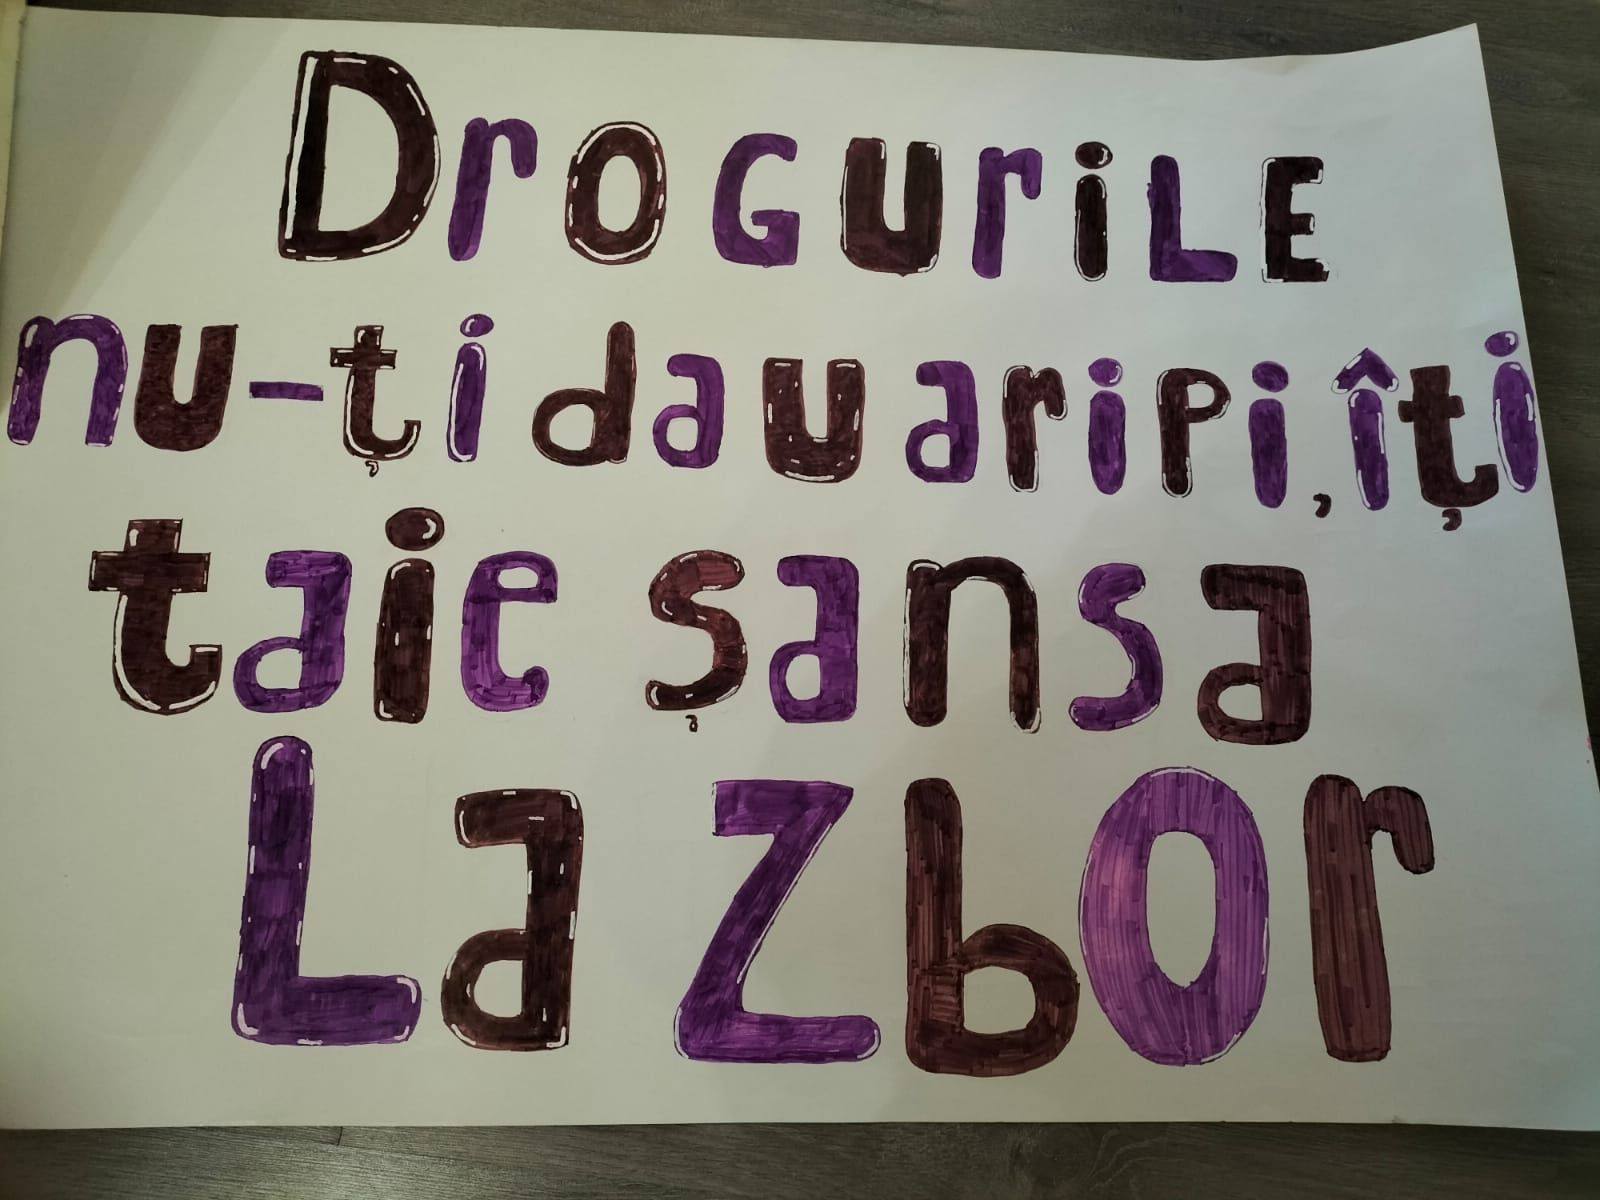 DroGuriLE
nu-ți dau aripi, îți
taie șansa
La Zbor